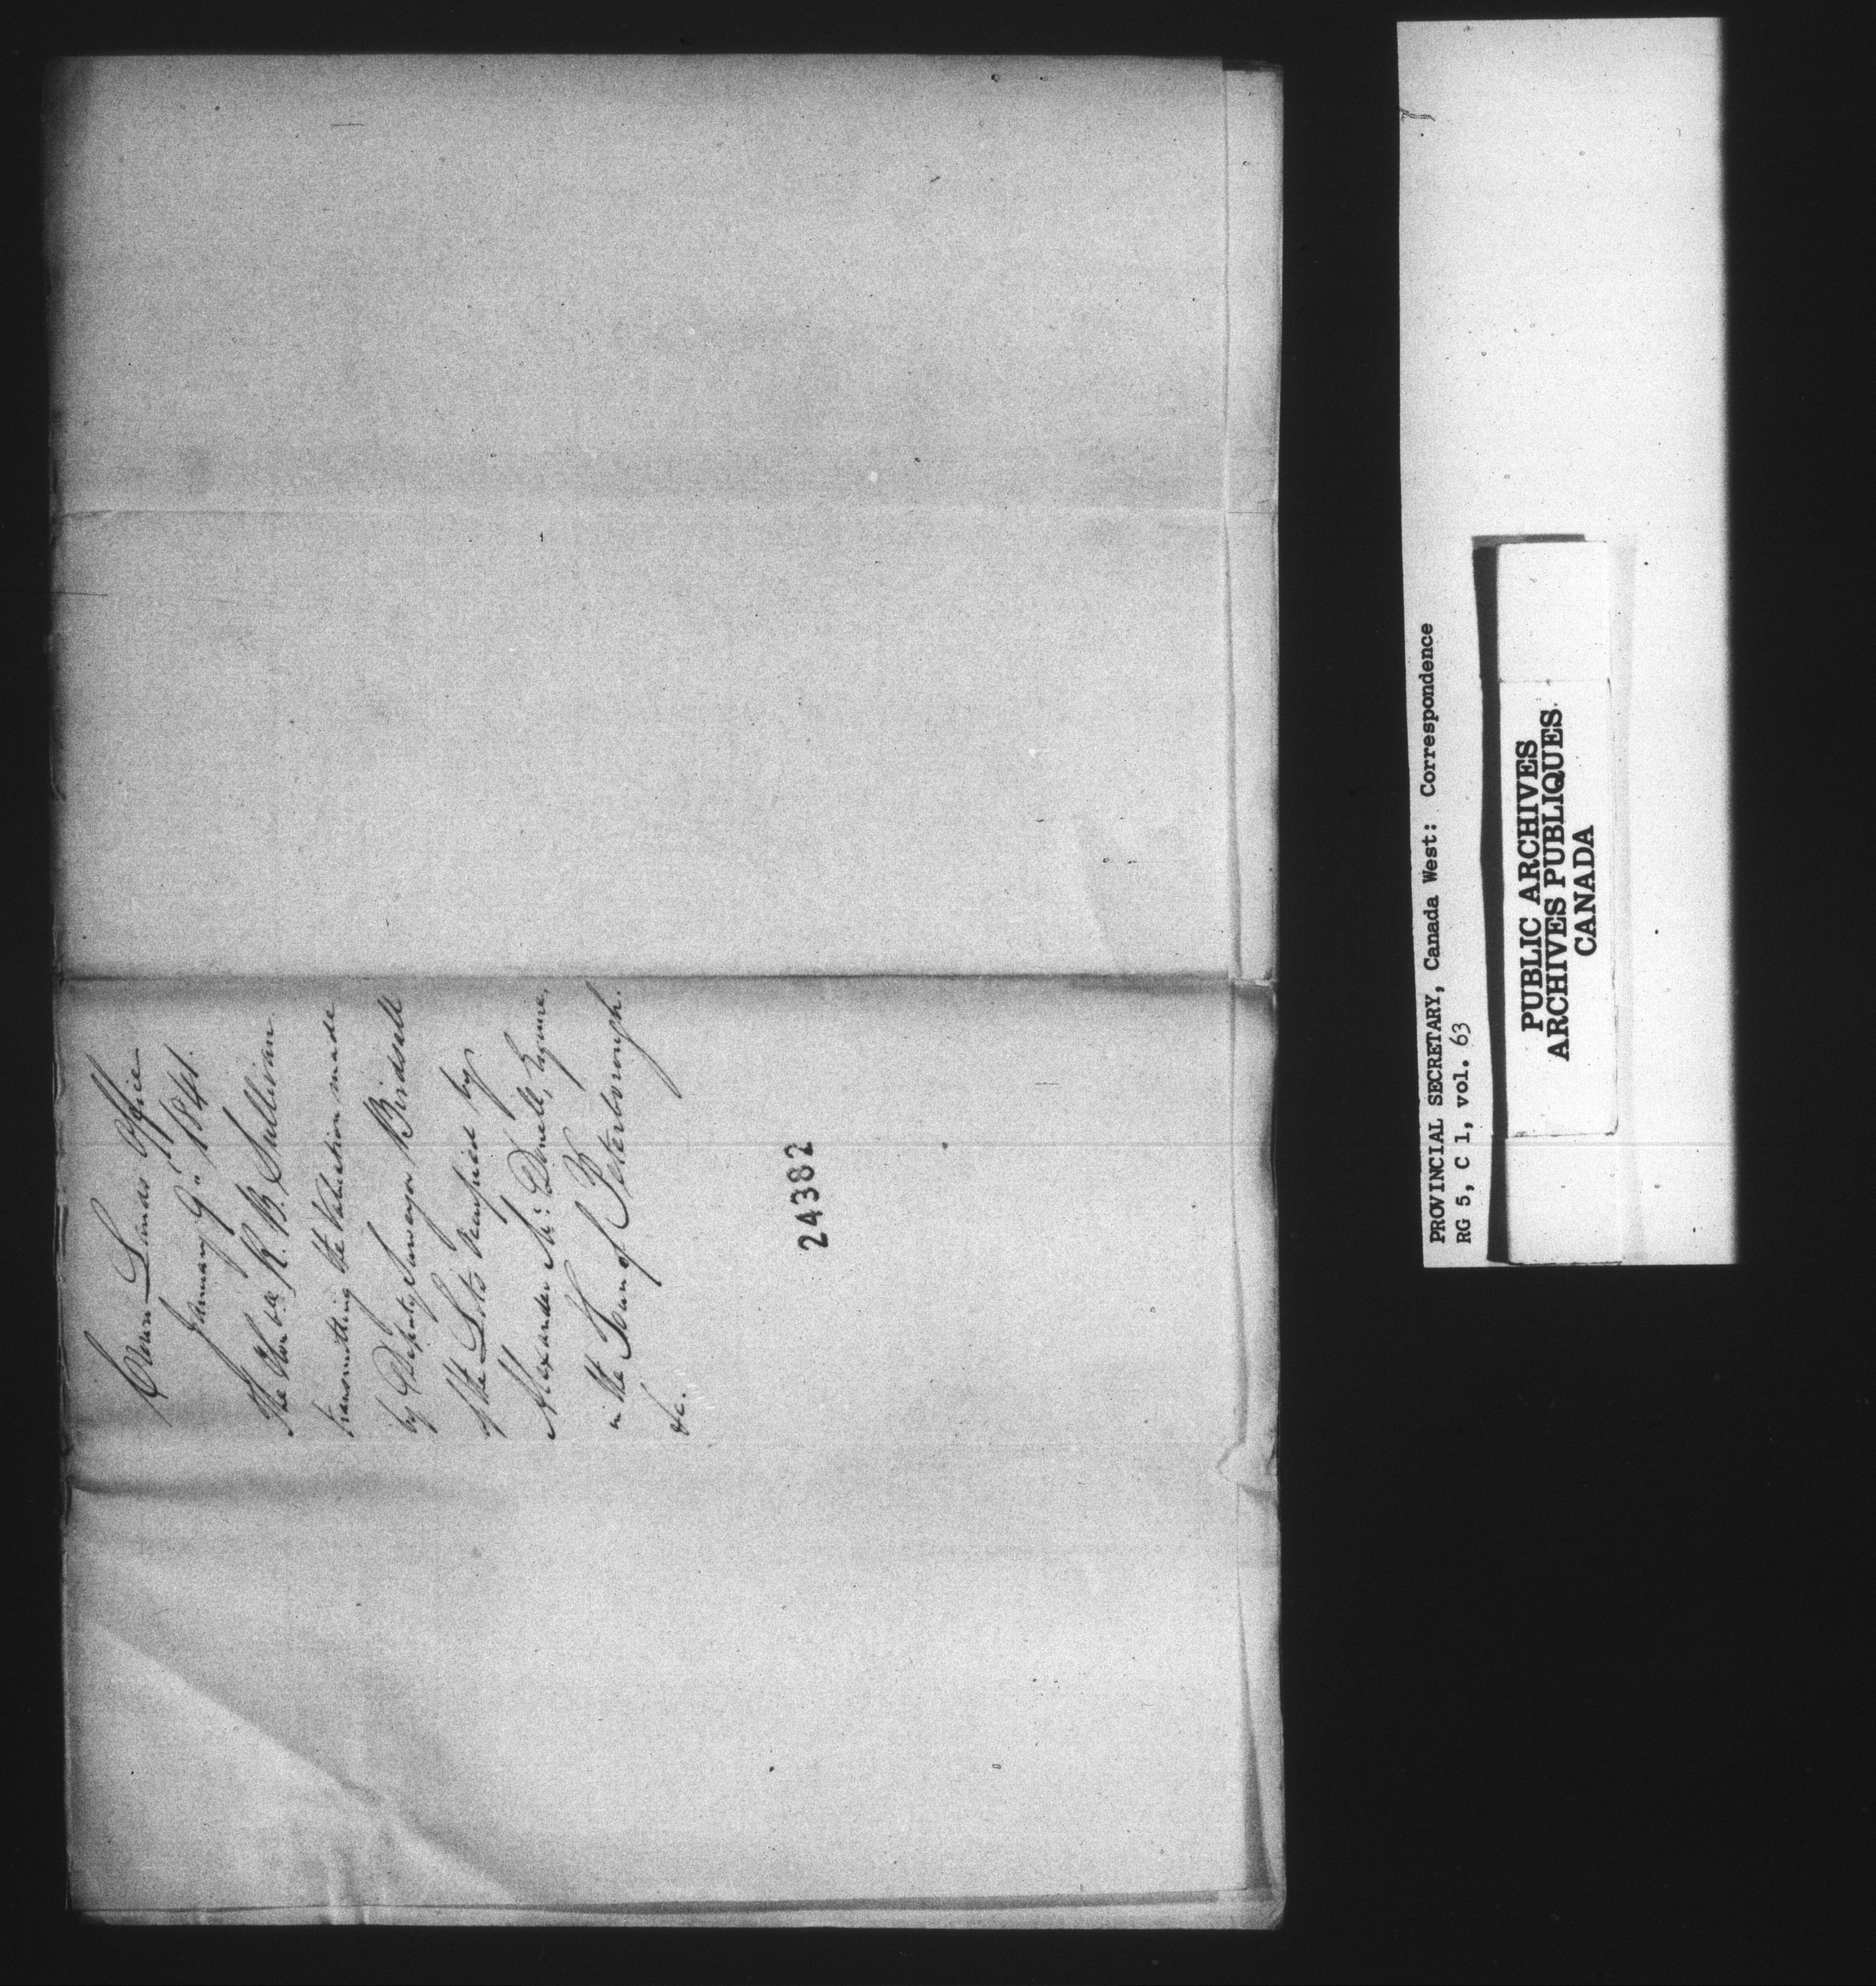 Crown Lands Office
January 9th 1841.
The Honble R. B. Sullivan.
transmitting the Valuation made
by Deputy Surveyor Birdsall
of the Lots occupied by
Alexander Mc: Donell, Esquire,
in the Town of Peterborough.
&c.
24382
PROVINCIAL SECRETARY, Canada West: Correspondence
RG 5, C 1, vol. 63
PUBLIC ARCHIVES
ARCHIVES PUBLIQUES
CANADA